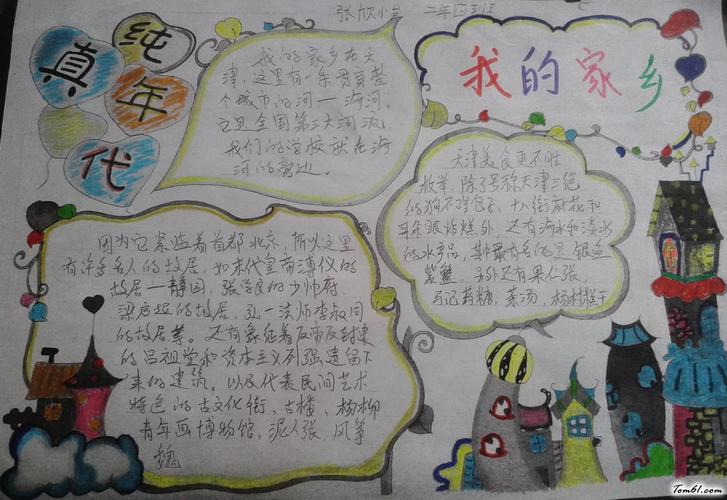 张欣 二年四班
纯真年代
我的家乡
我的家乡在天
津,这里有一条贯穿整
个城市的河一海河。
它是全国第三大河流,
我们的学校就在海
河的旁边。
天津美食更不胜
枚举,除了号称天津三绝
的狗不理包子、十八街麻花和
耳朵眼炸糕外,还有海水和淡水
的水产品,其中最有名的是银鱼
紫蟹,另外还有果仁张,
药糖,茶汤,杨村糕干
因为它紧临着首都北京,所以这里
有许多名人的故居,如末代皇帝溥仪的
故居一静园,张学良的少帅府
梁启超的故居,弘一法师李叔同
的故居等。还有象征着反帝反封建
的吕祖堂和资本主义列强遗留下
来的建筑。以及代表民间艺术
特色的古文化街、古楼、杨柳
青年画博物馆,泥人张,风筝
魏
Tom61.com